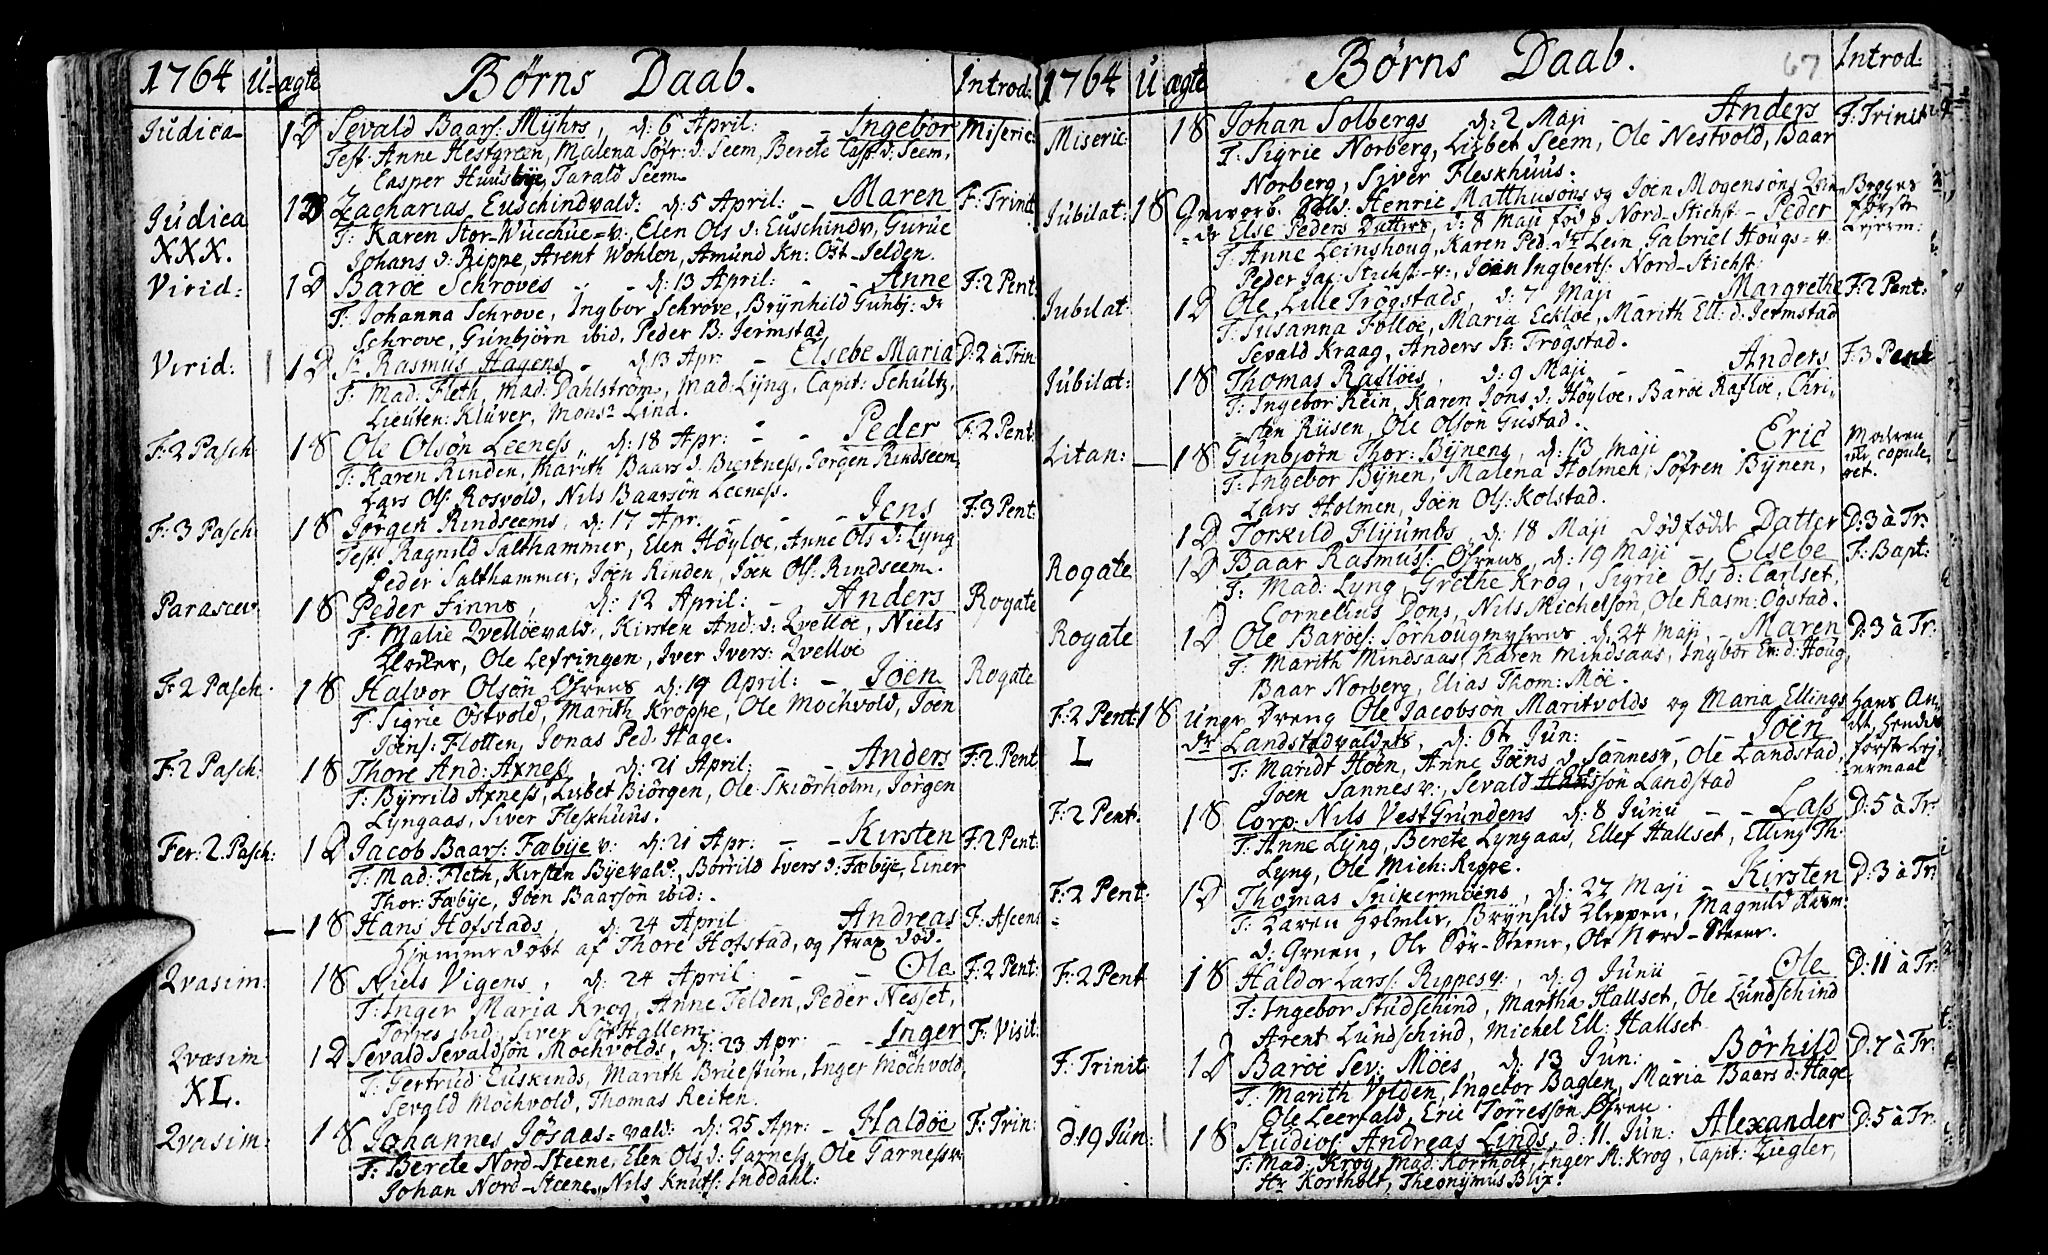 1764 U= ægte Børns Daab. Introd:
Judica 1 D Sevald Baars: Myhrs, d: 6 April: – Ingebor Miseric:
Test: Anne Hestgreen, Malena Søfr: d: Seem, Berete Casp: d: Seem,
Casper Huusbye, Tarald Seem.
Judica 1 D Zacharias Euschindvald: d: 5 April: – Maren F: Trinit
XXX. T: Karen Stor-Wucchue=v:, Elen Ols d: Euschindv, Gurue
Johans d: Rippe, Arent Wohlen, Amund Kn: Ost-Jelden.
Virid: 1 D Baroe Schroves – – d: 13 April: – – Anne F: 2 Pent:
T: Johanna Schrove, Ingbor Schrove, Brynhild Gunbj: dr
Schrove, Gunbjørn ibid, Peder B: Jermstad
Virid: 1 D Sr Rasmus Hagens – d: 13 Apr: – Elsebe Maria D: 2 à Trin
T: Mad: Fleth, Mad: Dahlstrøm, Mad: Lyng, Capit: Schultz,
Lieuten: Klüver, Monsr Lind.
F: 2 Pasch: 1 8 Ole Olsøn Leeness „ d: 18 Apr: – – Peder F: 2 Pent:
T: Karen Rinden, Marith Baars d: Buestness, Jørgen Rindseem,
Lars Ols: Rosvold, Nils Baarsøn Leeness.
F: 3 Pasch: 1 8 Jørgen Rindseems, d: 17 Apr: – – Jens F: 3 Pent:
Test: Ragnild Salthammer, Elen Høyloe, Anne Ols d: Lyng
Peder Salthammer, Joen Rinden, Joen Ols: Rindseem.
Parascev: 1 8 Peder Finns, d: 12 April: – Anders Rogate
T: Malie Qvelloevald:, Kirsten And: d: Qvelloe, Niels
Klocker, Ole Lefringen, Iver Ivers: Qvelloe
F: 2 Pasch: 1 8 Halvor Olsøn Øhrens d: 19 April: – Joen Rogate
T: Sigrie Ostvold, Marith Kroppe, Ole Mochvold, Joen
Joens: Flotten, Jonas Ped: Hage.
F: 2 Pasch: 1 8 Thore And: Axness, d: 21 April: – – Anders F: 2 Pent
T: Byrrild Axness, Lisbet Biørgen, Ole Skiørholm, Jørgen
Lyngaas, Siver Fleskhuus.
Fer: 2. Pasch: 1 D Jacob Baars: Fæbye v: d: 21 Apr: – – Kirsten F: 2 Pent:
T: Mad: Fleth, Kirsten Byevald:, Børrild Ivers d: Fæbye, Einer
Thor: Fæbye, Joen Baarssøn ibid:.
– 1 8 Hans Hofstads, d: 24 April Andreas F: Ascens
Hjemmedøbt af Thore Hofstad, og strax død.
Qvasim: 1 8 Niels Vigens, d: 24 April: – – Ola F: 2 Pent:
T: Inger Maria Krog, Anne Telden, Peder Nesset,
Torres ibid: Siver Sør Hallem.
Qvasim 1 D Sevald Sevaldsøn Mochvolds, d: 23 Apr: – – Inger F: Visit:
XL. T: Gertrud Euskinds, Marith Bruesturn, Inger Mochvold,
Sevald Mochvold, Thomas Reiten.
Qvasim: 1 8 Johannes Jøsaas=vald: d: 25 Apr: – Haldoe F: Trin:
T: Berete Nord-Steene, Elen Ols d: Garness, Ole Garness v:
Johan Nord-Steene, Nils Knuts: Inddahl:
1764 U ægte Børns Daab. 67 Introd:
Miseric: 1 8 Johan Solbergs d: 2 Maji – Anders F: Trinit
T: Sigrie Norberg, Lisbet Seem, Ole Nestvold, Baar
Norberg, Siver Fleskhuus.
Jubilat: 1 8 Henric Matthusøns og Joen Mogensøns Begges
Else Peders Datter, d: 8 Maji fød p Nord-Stichst – Peder første
T: Anne Leinshoug, Karen Ped: dr Lein, Gabriel Hougs=v: Lejerm:
Peder Jac: Stichst-v:, Joen Ingberts: Nord-Stichst:
Jubilat: 1 D Ole Lille Trøgstads, d: 7 Maji – Margrethe F: 2 Pent:
T: Susanna Folloe, Maria Eckloe, Marith Ell: d: Jermstad
Sevald Kraag, Anders St: Trøgstad.
Jubilat: 1 8 Thomas Rafloes, d: 9 Maji – – Anders F: 3 Pent
T: Ingebor Rein, Karen Jons d: Høyloe, Baroe Rafloe, Chri=
=sten Riisen, Ole Olsøn Gustad.
Litan: – 1 8 Gunbjørn Thor: Bynens, d: 13 Maji Eric Moderen
T: Ingebor Bynen, Malena Holmen, Søfren Bynen, copule=
Lars Holmen, Joen Ols: Kolstad. ret.
1 D Torkild Flyumbs, d: 18 Maji Dødfødt Datter D: 3 à Tr:
Rogate 1 D Baar Rasmuss: Øhrens, d: 19 Maji – Elsebe F: Bapt:
T: Mad: Lyng, Grethe Krog, Sigrie Ols d: Carlset,
Cornelius Dons, Nils Michelsøn, Ole Rasm: Ogstad.
Rogate 1 D Ole Baroes: Sørhougmyhrens, d: 24 Maji, – Maren D: 3 à Tr:
T: Marith Mindsaas, Karen Mindsaas, Ingbor Er: d: Houg,
Baar Norberg, Elias Thom: Moe.
F: 2 Pent: 1 8 Ungr Dreng Ole Jacobsøn Maritvolds og Maria Ellings Hans An=
dr Landstadvaldets, d: 6t Jun: Joen det, Hendes
L T: Maridt Hoen, Anne Joens d: Sannesv, Ole Landstad, første Lej=
Joen Sannes v:, Sevald Landstad =ermaal
F: 2 Pent: 1 8 Corp: Nils VestGrundens d: 8 Junii – – Lass D: 5 à Tr:
T: Anne Lyng, Berete Lyngaas, Ellef Hallset, Elling Th:
Lyng, Ole Mich: Rippe.
F: 2 Pent: 1 D Thomas Snikermoens, d: 27 Maji – Kirsten D: 3 à Tr:
T: Karen Holmlie, Brynhild Kleppen, Magnild Rasm:
d: Green, Ole Sør-Steene, Ole Nord-Steene.
F: 2 Pent 1 8 Haldor Larss: Rippesv:, d: 9 Junii – – Ole D: 11 à Tr:
T: Ingebor Studschind, Martha Hallset, Ole Lundschind
Arent Lundschind, Michel Ell: Hallset
F: Trinit: 1 D Baroe Sev: Moes, d: 13 Jun: Børhild D: 7 à Tr:
T: Marith Volden, Ingebor Baglen, Maria Baars d: Hage
Ole Leerfald, Eric Torressøn Øhren.
d: 19 Jun: 1 8 Studios: Andreas Linds, d: 11. Jun: Alexander D: 5 à Tr:
T: Mad: Krog, Mad: Kortholt, Inger M: Krog, Capit: Ziegler,
Hr Kortholt, Theonymus Blix.